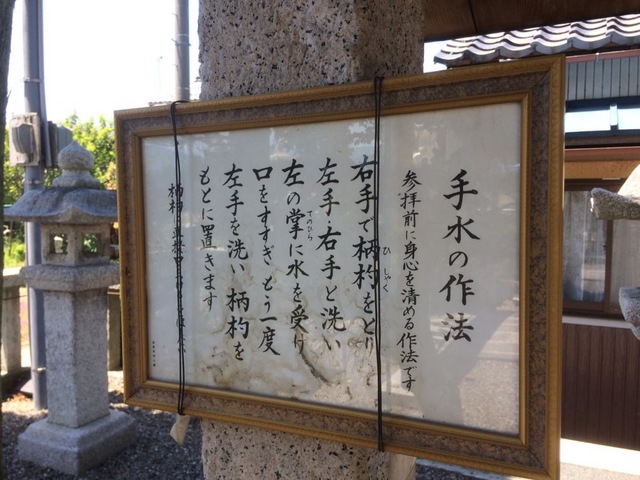 手水の作法
参拝前に身心を清める作法です
右手で柄杓をとり
ひしゃく
左手・右手と洗い
左の掌に水を受け
てのひら
口をすすぎ もう一度
左手を洗い 柄杓を
もとに置きます